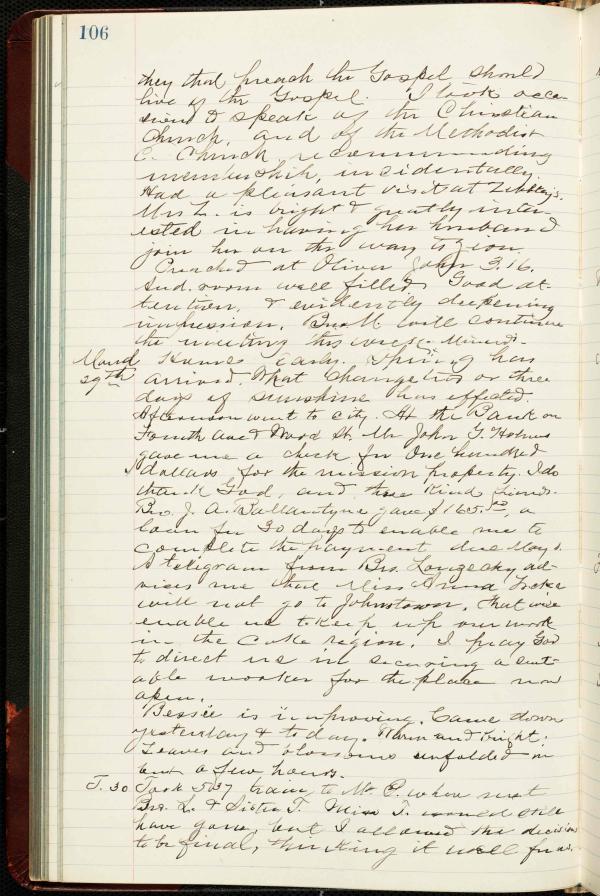 106
they that preach the Gospel should
live of the Gospel. I took occa-
sion to speak of the Christian
Church, and of the Methodist
E. Church, recommending
membership, incidentally.
Had a pleasant visit at
Mrs L. is bright & greatly inter-
ested in having her husband
join her on the way to Zion.
Preached at Oliver John 3.16.
Aud. room well filled. Good at-
tention, & evidently deepening
impression. Bro M. will continue
the meeting this week.
March
29th
cash. Spring has
arrived. What change two or three
days of sunshine has effected.
Afternoon went to city. At the Bank on
Fourth Ave & Wood St. Mr John G. Holmes
gave me a check for One hundred
dollars for the mission property. I do
thank God, and these kind friends.
Bro. J. A. Ballantyne gave $165. a
loan for 30 days to enable me to
complete the payment due May 1.
A telegram from Bro. ad-
vises me that Miss Anna
will not go to Johnstown. That will
enable us to keep up our work
in the coke region. I pray God
to direct us in securing a suit-
able worker for the place now
open.
Bessie is improving. Came down
yesterday & to day. Warm and bright.
Leaves and blossoms unfolded in
but a few hours.
T. 30 Took 5.37 train to Mt. P. where met
Bro. L. & Sister T. Miss T. would still
have gone, but I allowed the decision
to be final, thinking it will